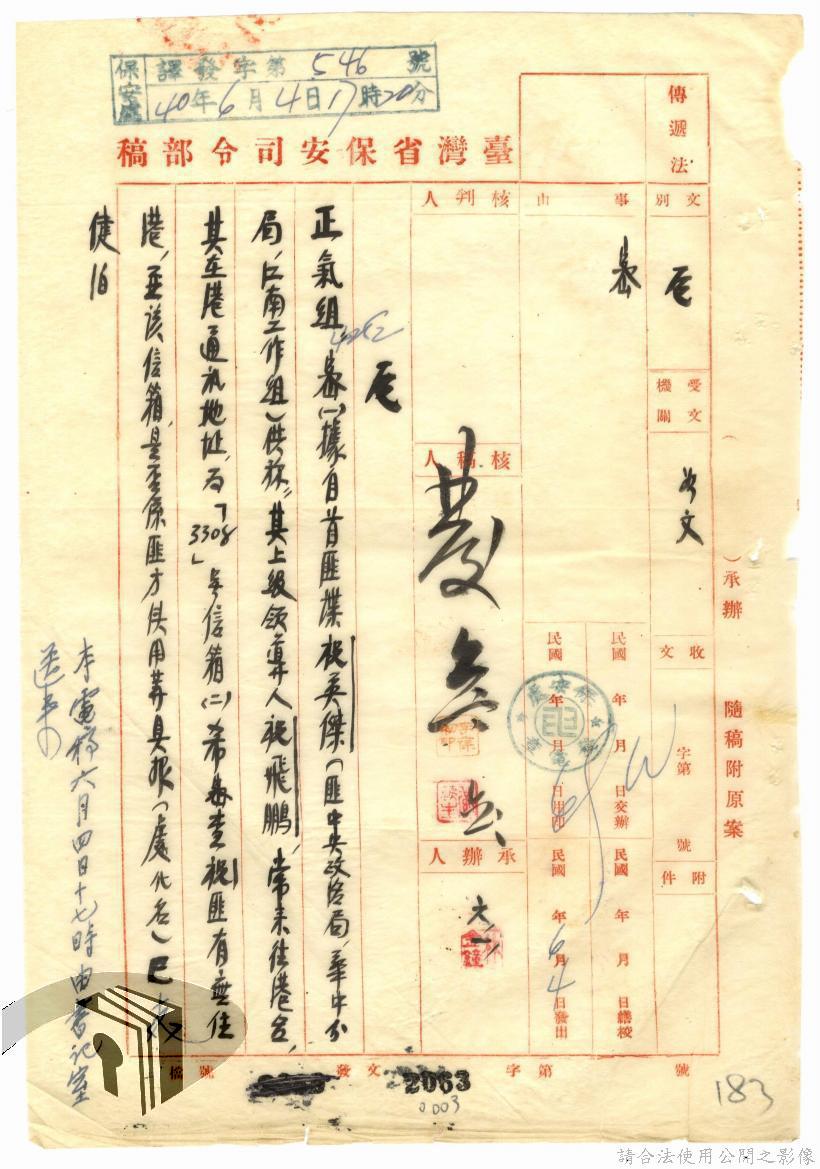 保安處
譯發字第546號
40年6月4日17時20分
臺灣省保安司令部稿
傳遞法
文別
電
受文機關
收文
字第
號
附件
事由
核判人
核稿人
承辦人
民國 年 月 日交辦
民國 年 月 日繕校
民國 年 月 日用印
民國 年6月4日發出
承辦
隨稿附原案
電
正氣組
(一)據自首匪諜祝英傑(匪中央政治局,華中分
局,江南工作組)供稱:其上級領導人祝飛鵬,常來往港台,
其在港通訊地址,為「3308」號信箱(二)希查祝匪有無住
港,並該信箱,是否係匪方使用等具報(處化名)巳
健伯
本電稿六月四日十七時由書記室
送來
發文
字第
號
檔號
2063
0003
183
請合法使用公開之影像